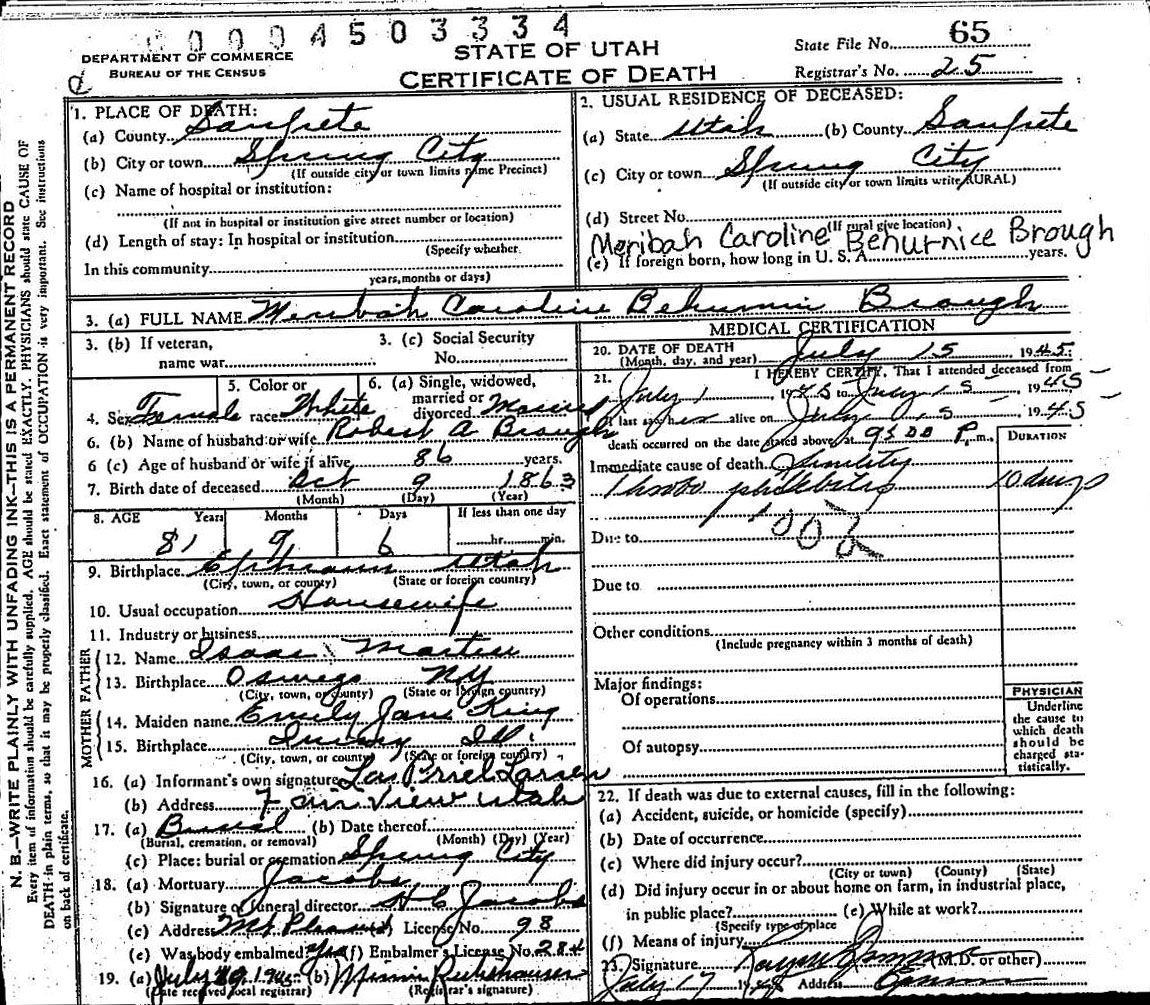 0004503334
DEPARTMENT OF COMMERCE
BUREAU OF THE CENSUS
STATE OF UTAH
CERTIFICATE OF DEATH
State File No. 65
Registrar's No. 25
N. B.—WRITE PLAINLY WITH UNFADING INK—THIS IS A PERMANENT RECORD
Every item of information should be carefully supplied. AGE should be stated EXACTLY. PHYSICIANS should state CAUSE OF
DEATH in plain terms, so that it may be properly classified. Exact statement of OCCUPATION is very important. See instructions
on back of certificate.
1. PLACE OF DEATH:
(a) County Sanpete
(b) City or town Spring City
(If outside city or town limits name Precinct)
(c) Name of hospital or institution:
(If not in hospital or institution give street number or location)
(d) Length of stay: In hospital or institution
(Specify whether
In this community
years, months or days)
2. USUAL RESIDENCE OF DECEASED:
(a) State Utah (b) County Sanpete
(c) City or town Spring City
(If outside city or town limits write RURAL)
(d) Street No.
(If rural give location)
Meribah Caroline Behurnice Brough
(e) If foreign born, how long in U. S. A. years.
3. (a) FULL NAME Meribah Caroline Behunin Brough
3. (b) If veteran,
name war
3. (c) Social Security
No.
4. Sex Female
5. Color or
race White
6. (a) Single, widowed,
married or
divorced Married
6. (b) Name of husband or wife Robert A Brough
6 (c) Age of husband or wife if alive 86 years.
7. Birth date of deceased Oct 9 1863
(Month) (Day) (Year)
8. AGE Years Months Days If less than one day
81 9 6 hr. min.
9. Birthplace Ephraim Utah
(City, town, or county) (State or foreign country)
10. Usual occupation Housewife
11. Industry or business
FATHER
12. Name Isaac Martin
13. Birthplace Oswego NY
(City, town, or county) (State or foreign country)
MOTHER
14. Maiden name Emily Jane King
15. Birthplace Quincy Ill.
(City, town, or county) (State or foreign country)
16. (a) Informant's own signature Larsen
(b) Address Fairview Utah
17. (a) Burial (b) Date thereof
(Burial, cremation, or removal) (Month) (Day) (Year)
(c) Place: burial or cremation Spring City
18. (a) Mortuary Jacobs
(b) Signature of funeral director H C Jacobs
(c) Address Mt Pleasant License No. 98
(e) Was body embalmed? Yes (f) Embalmer's License No. 284
19. (a) July (b)
(Date received local registrar) (Registrar's signature)
MEDICAL CERTIFICATION
20. DATE OF DEATH July 15 1945
(Month, day, and year)
21. I HEREBY CERTIFY, That I attended deceased from
July 1 1945 to July 15 1945
I last saw her alive on July 15 1945
death occurred on the date stated above, at 9:00 P. m.
DURATION
Immediate cause of death Senility
Thrombo phlebitis 10 days
002
Due to
Due to
Other conditions
(Include pregnancy within 3 months of death)
Major findings:
Of operations
Of autopsy
PHYSICIAN
Underline
the cause to
which death
should be
charged sta-
tistically.
22. If death was due to external causes, fill in the following:
(a) Accident, suicide, or homicide (specify)
(b) Date of occurrence
(c) Where did injury occur?
(City or town) (County) (State)
(d) Did injury occur in or about home on farm, in industrial place,
in public place? (e) While at work?
(Specify type of place
(f) Means of injury
23. Signature (M.D. or other)
July 17 Address